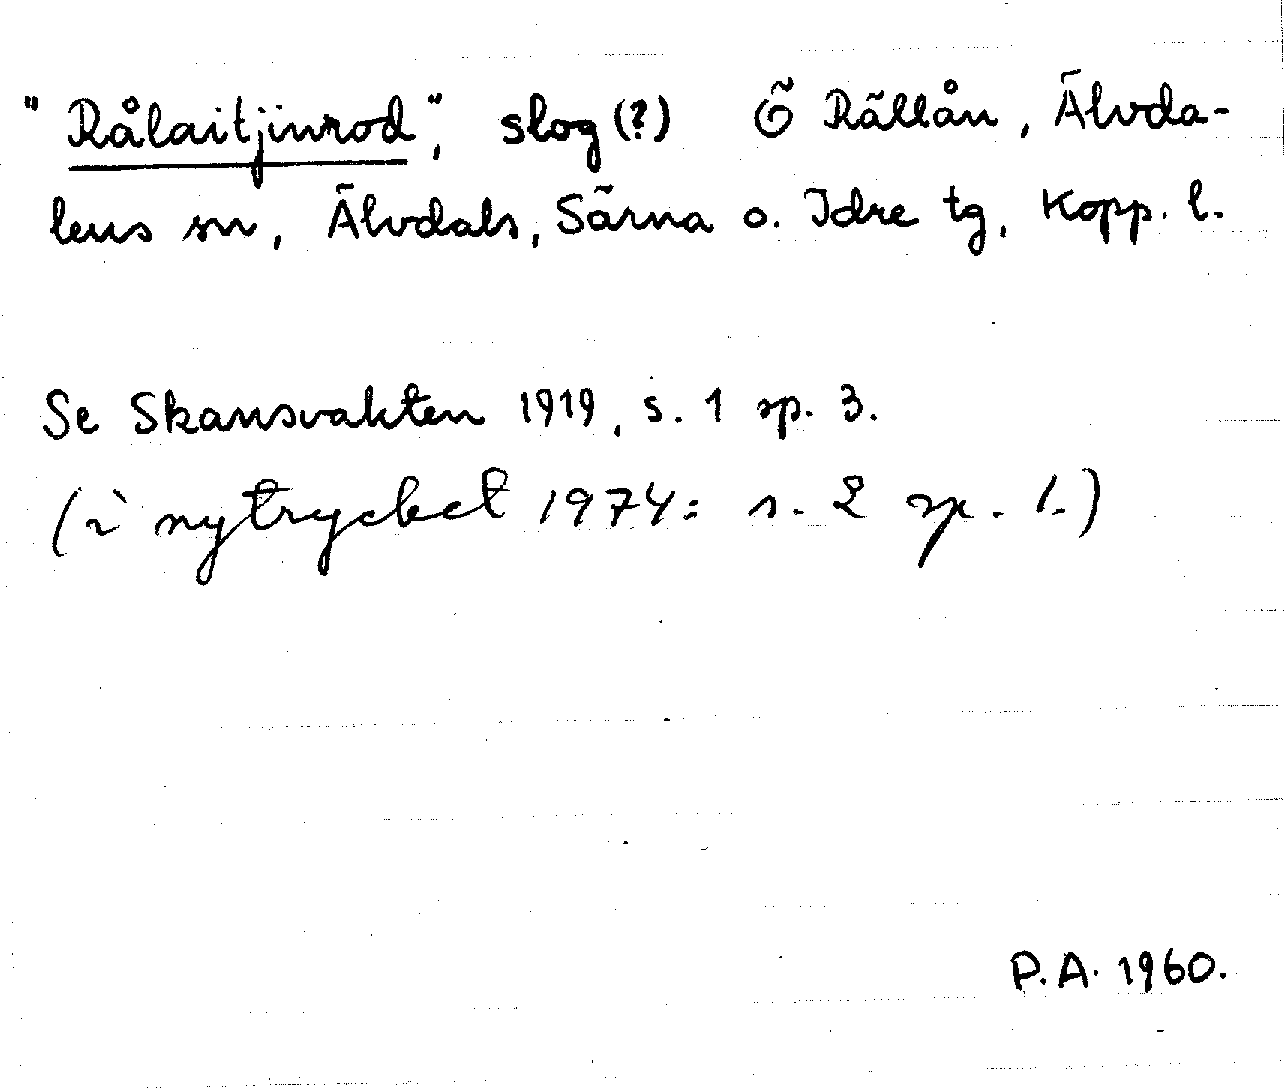 "Rålaitjinrod", slog (?) Ö Rällån, Älvda-
lens sn, Älvdals, Särna o. Idre tg, Kopp. l.
Se Skansvakten 1919, s. 1 sp. 3.
(i nytrycket 1974: s. 2 sp. 1.)
P.A. 1960.